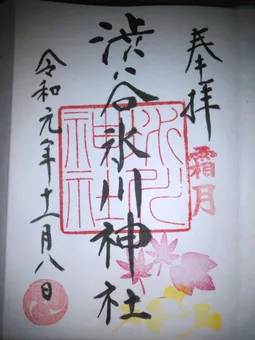 奉拝
霜月
渋谷氷川神社
氷川
神社
令和元年十一月八日